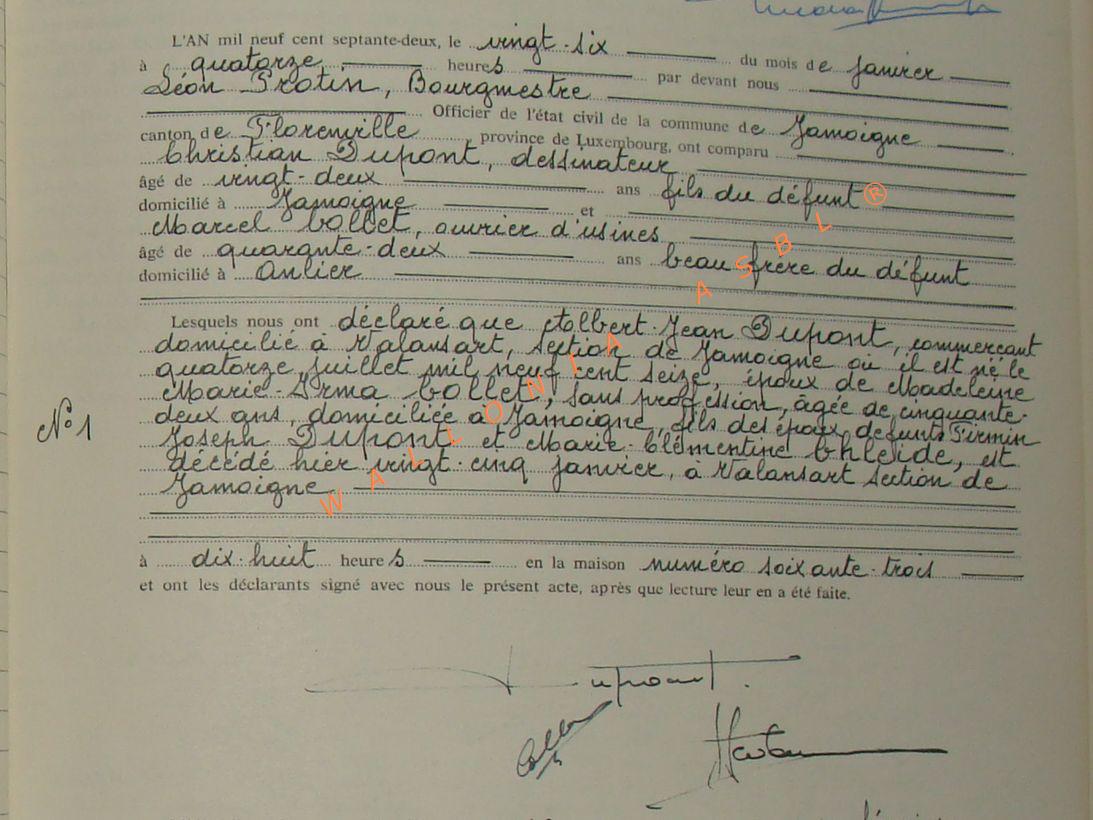 L'AN mil neuf cent septante-deux, le vingt-six du mois de janvier
à quatorze heures par devant nous
Léon Protin, Bourgmestre
Officier de l'état civil de la commune de Jamoigne
canton de Florenville province de Luxembourg, ont comparu
Christian Dupont, dessinateur
âgé de vingt-deux ans fils du défunt
domicilié à Jamoigne et
Marcel Collet, ouvrier d'usines
âgé de quarante-deux ans beau frère du défunt
domicilié à Anlier
Lesquels nous ont déclaré que Albert-Jean Dupont, commerçant
domicilié à Valansart, section de Jamoigne où il est né le
quatorze juillet mil neuf cent seize, époux de Madeleine
Marie-Irma Collet, sans profession, âgée de cinquante-
deux ans, domiciliée à Jamoigne, fils des époux defunts Firmin
Joseph Dupont et Marie-Clémentine Chleide, est
N°1
décédé hier vingt-cinq janvier, à Valansart section de
Jamoigne
à dix-huit heures en la maison numéro soixante-trois
et ont les déclarants signé avec nous le présent acte, après que lecture leur en a été faite.
Dupont.
Collet
WALLONIA ASBL®